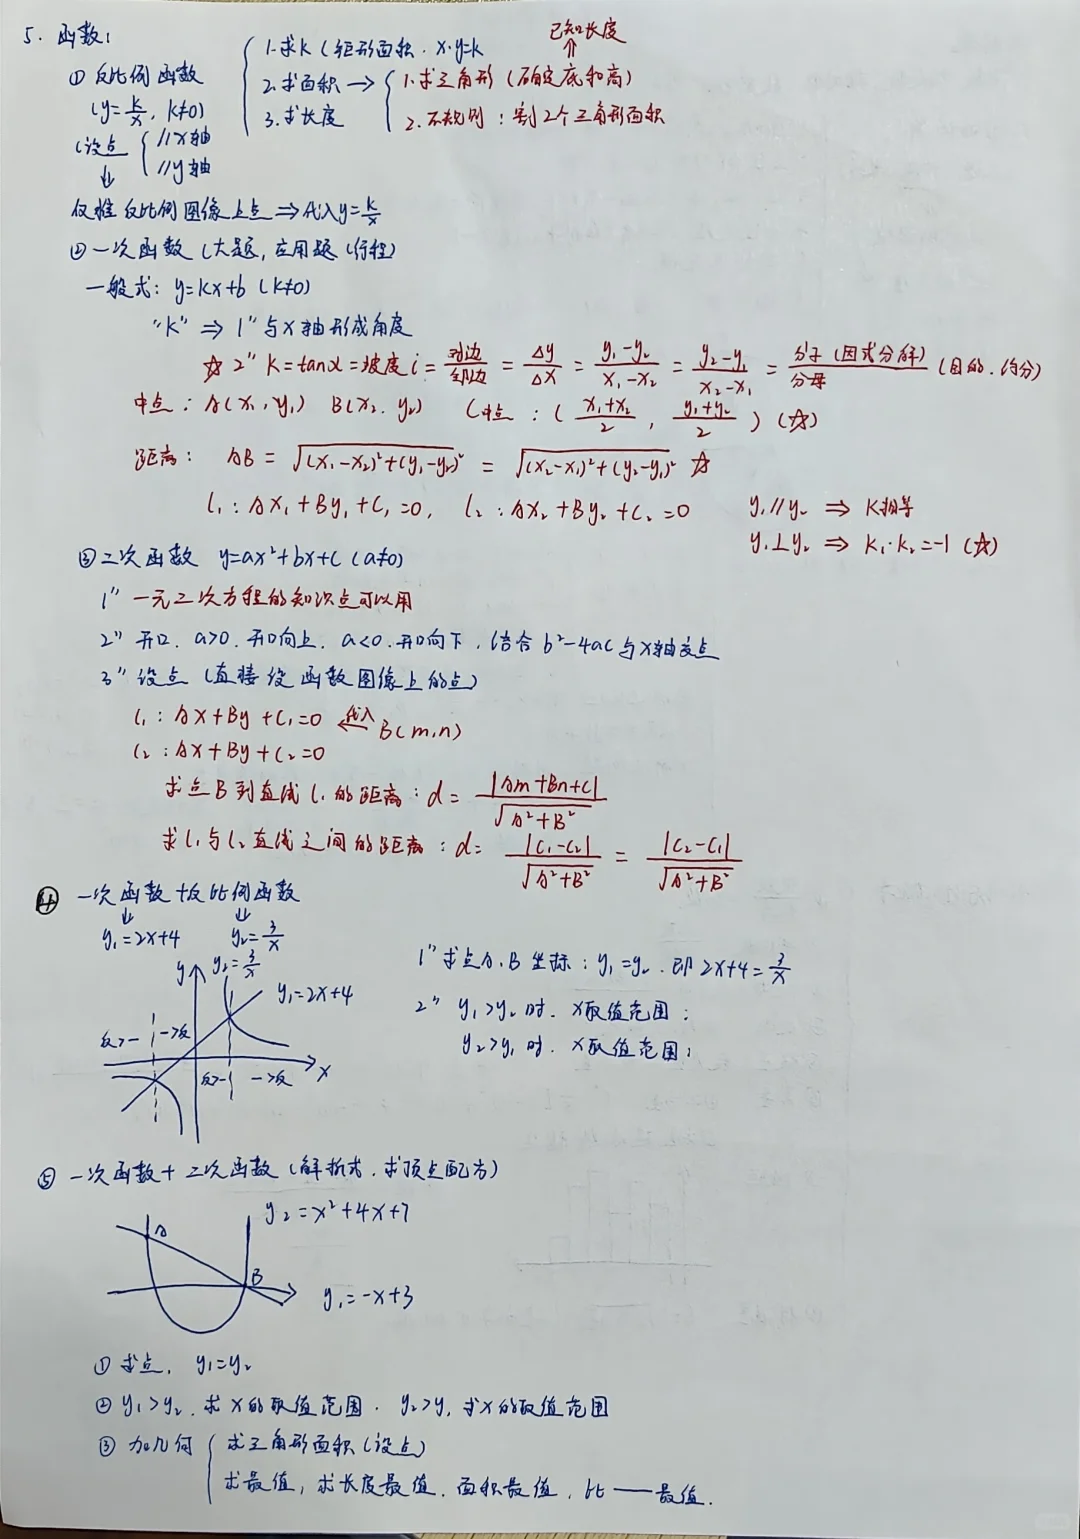 5. 函数:
① 反比例函数
(y=k/x, k≠0)
(设点 { //x轴
//y轴
⇓
仅维反比例图像上点 ⇒ 代入y=k/x
{ 1.求k (矩形面积. x·y=k
2.求面积 → { 1.求三角形 (确定底和高) ⇒ 已知长度
2.不规则: 割2个三角形面积
3.求长度
② 一次函数 (大题, 应用题 (行程)
一般式: y=kx+b (k≠0)
"k" ⇒ 1" 与x轴形成角度
☆ 2" K=tanα=坡度i=对边/邻边=Δy/Δx=(y₁-y₂)/(x₁-x₂)=(y₂-y₁)/(x₂-x₁)=分子(因式分解)/分母 (目的.约分)
中点: A(x₁,y₁) B(x₂.y₂) (中点: ((x₁+x₂)/2, (y₁+y₂)/2) (☆)
距离: AB=√((x₁-x₂)²+(y₁-y₂)²)=√((x₂-x₁)²+(y₂-y₁)²) ☆
l₁: Ax₁+By₁+C₁=0, l₂: Ax₂+By₂+C₂=0 y₁//y₂ ⇒ K相等
y₁⊥y₂ ⇒ k₁·k₂=-1 (☆)
③ 二次函数 y=ax²+bx+c (a≠0)
1" 一元二次方程的知识点可以用
2" 开口. a>0. 开口向上. a<0. 开口向下, 结合b²-4ac与x轴交点
3" 设点 (直接设函数图像上的点)
l₁: Ax+By+C₁=0 ⇐代入 B(m,n)
l₂: Ax+By+C₂=0
求点B到直线l₁的距离: d=|Am+Bn+C|/√(A²+B²)
求l₁与l₂直线之间的距离: d=|C₁-C₂|/√(A²+B²)=|C₂-C₁|/√(A²+B²)
④ 一次函数+反比例函数
⇓ ⇓
y₁=2x+4 y₂=3/x
y y₂=3/x
y₁=2x+4
反>一 一>反
反>一 一>反 x
1" 求点A.B坐标: y₁=y₂. 即2x+4=3/x
2" y₁>y₂时. x取值范围;
y₂>y₁时. x取值范围;
⑤ 一次函数+二次函数 (解析式. 求顶点配方)
y₂=x²+4x+7
A
B
y₁=-x+3
① 求点. y₁=y₂
② y₁>y₂. 求x的取值范围. y₂>y₁ 求x的取值范围
③ 加几何 { 求三角形面积 (设点)
求最值, 求长度最值. 面积最值, 比——最值.